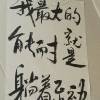 我最大的
能耐就是
躺着不动